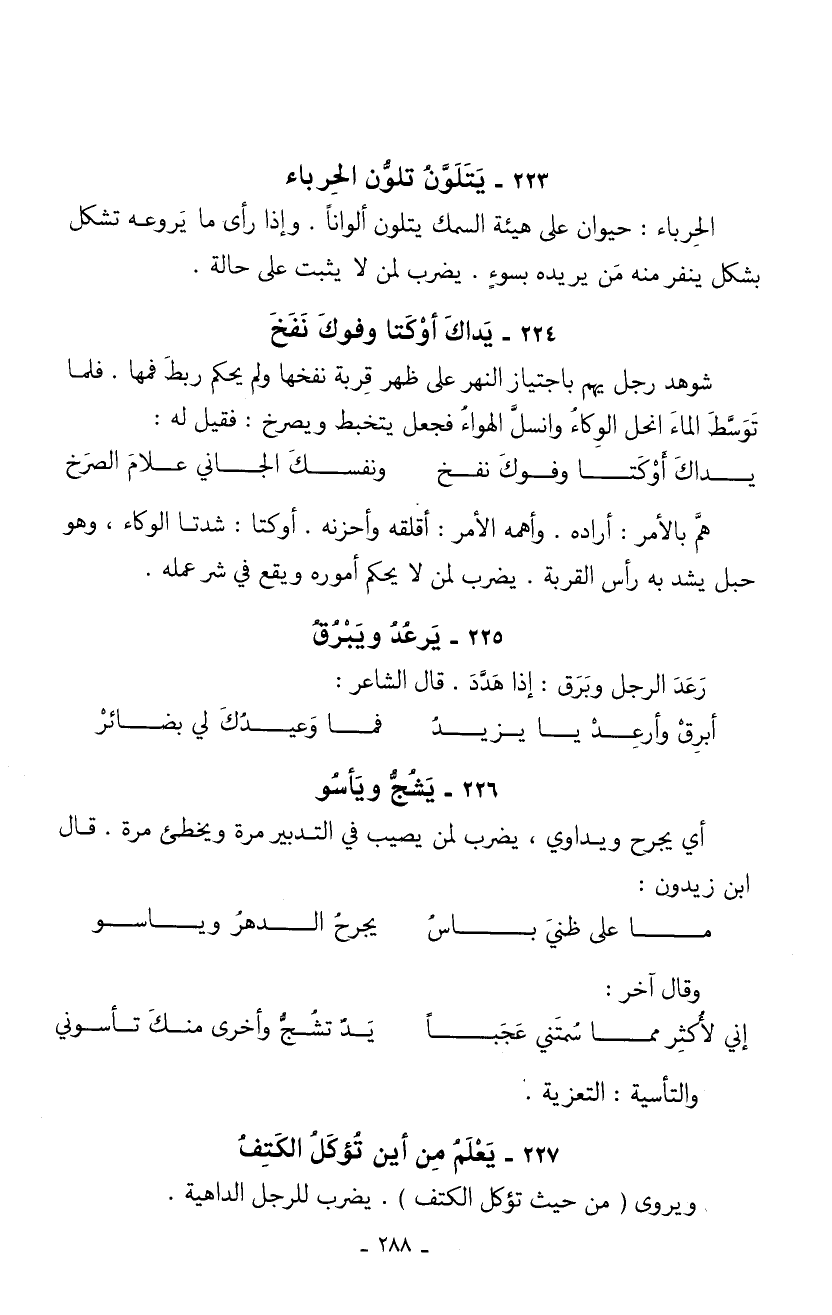 ٢٢٣ ـ يَتَلَوَّنُ تلوُّن الحِرباء
الحِرباء : حيوان على هيئة السمك يتلون ألواناً . وإذا رأى ما يَروعـه تشكل
بشكل ينفر منه مَن يريده بسوءٍ . يضرب لمن لا يثبت على حالة .
٢٢٤ ـ يَداكَ أوْكَتا وفوكَ نَفَخَ
شوهد رجل يهم باجتياز النهر على ظهر قِربة نفخها ولم يحكم ربطَ فمها . فلما
تَوَسَّطَ الماءَ انحل الوِكاءُ وانسلَّ الهواءُ فجعل يتخبط ويصرخ : فقيل له :
يـــداكَ أَوْكَتـــا وفــوكَ نفــخ ونفســـكَ الجــاني عــلامَ الصرَخ
همَّ بالأمر : أراده . وأهمه الأمر : أقلقه وأحزنه . أوكتا : شدتـا الوكاء ، وهو
حبل يشد به رأس القربة . يضرب لمن لا يحكم أموره ويقع في شر عمله .
٢٢٥ ـ يَرعُدُ ويَبْرُقُ
رَعَدَ الرجل وبَرَق : إذا هَدَّدَ . قال الشاعر :
أبرِقْ وأرعِـــدْ يـــا يــزيـــدُ فمـــا وَعيـــدُكَ لي بضـــائرْ
٢٢٦ ـ يَشُجُّ ويَأسُو
أي يجرح ويـداوي ، يضرب لمن يصيب في التـدبير مرة ويخطئ مرة . قـال
ابن زيدون :
مـــــا على ظنيَ بـــــاسُ يجرحُ الـــدهرُ ويـــاســـو
وقال آخر :
إني لأُكثِر ممـــا سُمتَني عَجَبـــاً يَــدٌ تشُــجُّ وأخرى منــكَ تــأســوني
والتأسية : التعزية .
٢٢٧ ـ يَعْلَمُ مِن أين تُؤكَلُ الكَتِفُ
ويروى ( من حيث تؤكل الكتف ) . يضرب للرجل الداهية .
ـ ٢٨٨ ـ